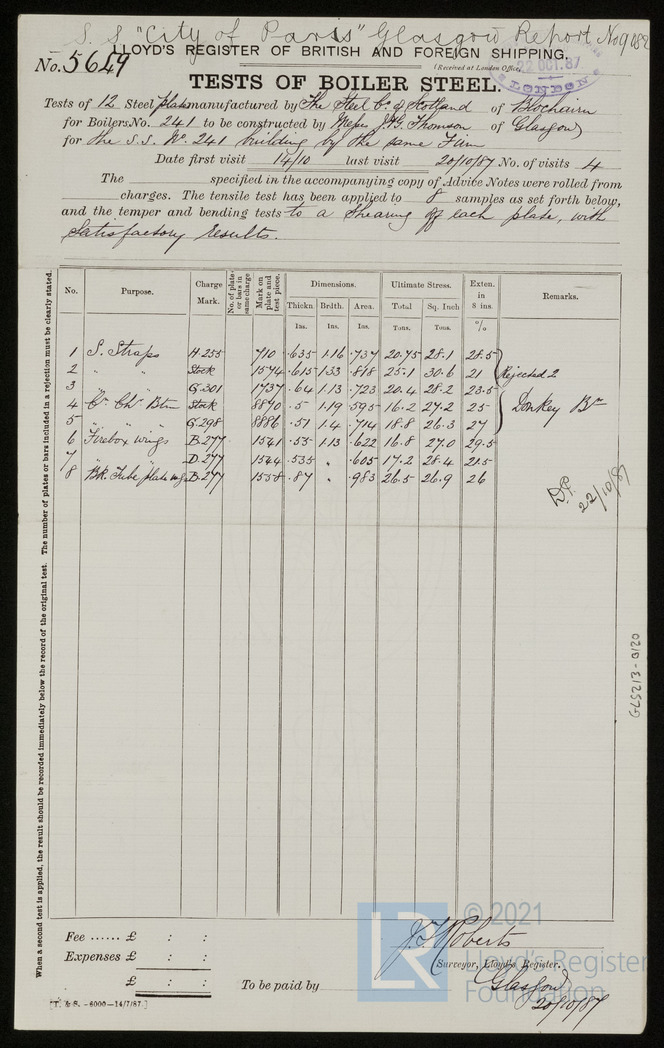 S. S. "City of Paris" Glasgow Report No 9082
LLOYD'S REGISTER OF BRITISH AND FOREIGN SHIPPING.
No. 5649
(Received at London Office
22 OCT. 87
LONDON
TESTS OF BOILER STEEL.
Tests of 12 Steel plates manufactured by The Steel Co. of Scotland of Blochairn
for Boilers No. 241 to be constructed by Messrs J. & G. Thomson of Glasgow
for the S.S. No. 241 building by the same Firm
Date first visit 14/10 last visit 20/10/87 No. of visits 4
The specified in the accompanying copy of Advice Notes were rolled from
charges. The tensile test has been applied to 8 samples as set forth below,
and the temper and bending tests to a shearing off each plate, with
satisfactory results.
When a second test is applied, the result should be recorded immediately below the record of the original test. The number of plates or bars included in a rejection must be clearly stated.
No. Purpose. Charge Mark. No. of plates or bars in same charge Mark on plate and test piece. Dimensions. Ultimate Stress. Exten. in 8 ins. Remarks.
Thickn Brdth. Area. Total Sq. Inch
Ins. Ins. Ins. Tons. Tons. %
1 S. Straps H.255 710 .635 1.16 .737 20.75 28.1 28.5
2 " " Stock 1574 .615 1.33 .818 25.1 30.6 21 Rejected 2
3 " " G.301 1737 .64 1.13 .723 20.4 28.2 23.5
4 Cr. Chr. Btm Stock 8870 .5 1.19 .595 16.2 27.2 25 Donkey Br
5 " " G.298 8886 .51 1.4 .714 18.8 26.3 27
6 Firebox wings B.277 1541 .55 1.13 .622 16.8 27.0 29.5
7 " " D.277 1544 .535 " .605 17.2 28.4 21.5
8 Bk. Tube plate wgs B.277 1558 .87 " .983 26.5 26.9 26
22/10/87
GLS213-0120
Fee ...... £ : :
Expenses £ : :
£ : :
To be paid by
J. T. Roberts
Surveyor, Lloyd's Register.
Glasgow
20/10/87
[T. & S. -6000-14/7/87.]
LR
© 2021
Lloyd's Register
Foundation